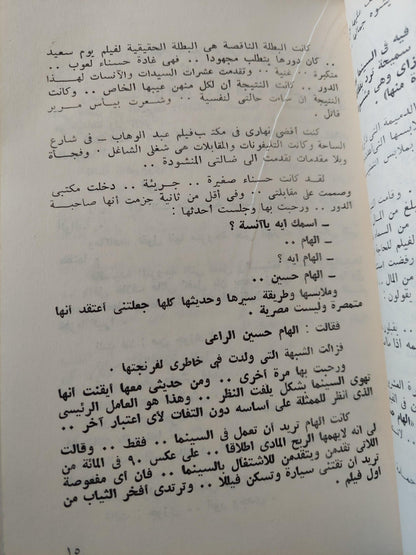 كانت البطلة الناقصة هى البطلة الحقيقية لفيلم يوم سعيد
.. كان دورها يتطلب مجهودا .. فهى غادة حسناء لعوب ..
متكبرة .. غنية .. وتقدمت عشرات السيدات والآنسات لهذا
الدور .. وكانت النتيجة أن لكل منهن عيبها الخاص .. وكانت
النتيجة أن ساءت حالتى لنفسية .. وشعرت بيأس مرير
قاتل .
كنت أقضى نهارى فى مكتب فيلم عبد الوهاب ــ فى شارع
الساحة وكانت التليفونات والمقابلات هى شغلى الشاغل . وفجأة
وبلا مقدمات تقدمت الى ضالتى المنشودة .
لقد كانت حسناء صغيرة .. جريئة .. دخلت مكتبى
وصممت على مقابلتى .. وفى أقل من ثانية جزمت أنها صاحبة
الدور .. ورحبت بها وجلست أحدثها :
ــ اسمك ايه ياآنسة ؟
ــ الهام ..
ــ الهام ايه ؟
ــ الهام حسين ..
وملابسها وطريقة سيرها وحديثها كلها جعلتنى أعتقد أنها
متمصرة وليست مصرية .
فقالت : الهام حسين الراعى .
فزالت الشبهة التى ولدت فى خاطرى لفرنجتها .
ورحبت بها مرة أخرى .. ومن حديثى معها أيقنت أنها
تهوى السينما بشكل يلفت النظر .. وهذا هو العامل الرئيسى
الذى أنظر للممثلة على أساسه دون التفات لأى اعتبار آخر ..
كانت الهام تريد أن تعمل فى السينما .. فقط .. وقالت
لى أنه لايهمها الربح المادى اطلاقا .. على عكس ٩٠ فى المائة من
اللائى تقدمن ويتقدمن للاشتغال بالسينما .. فان أى مفعوصة
تريد أن تقتنى سيارة وتسكن فيللا .. وترتدى أفخر الثياب من
أول فيلم .
١٥